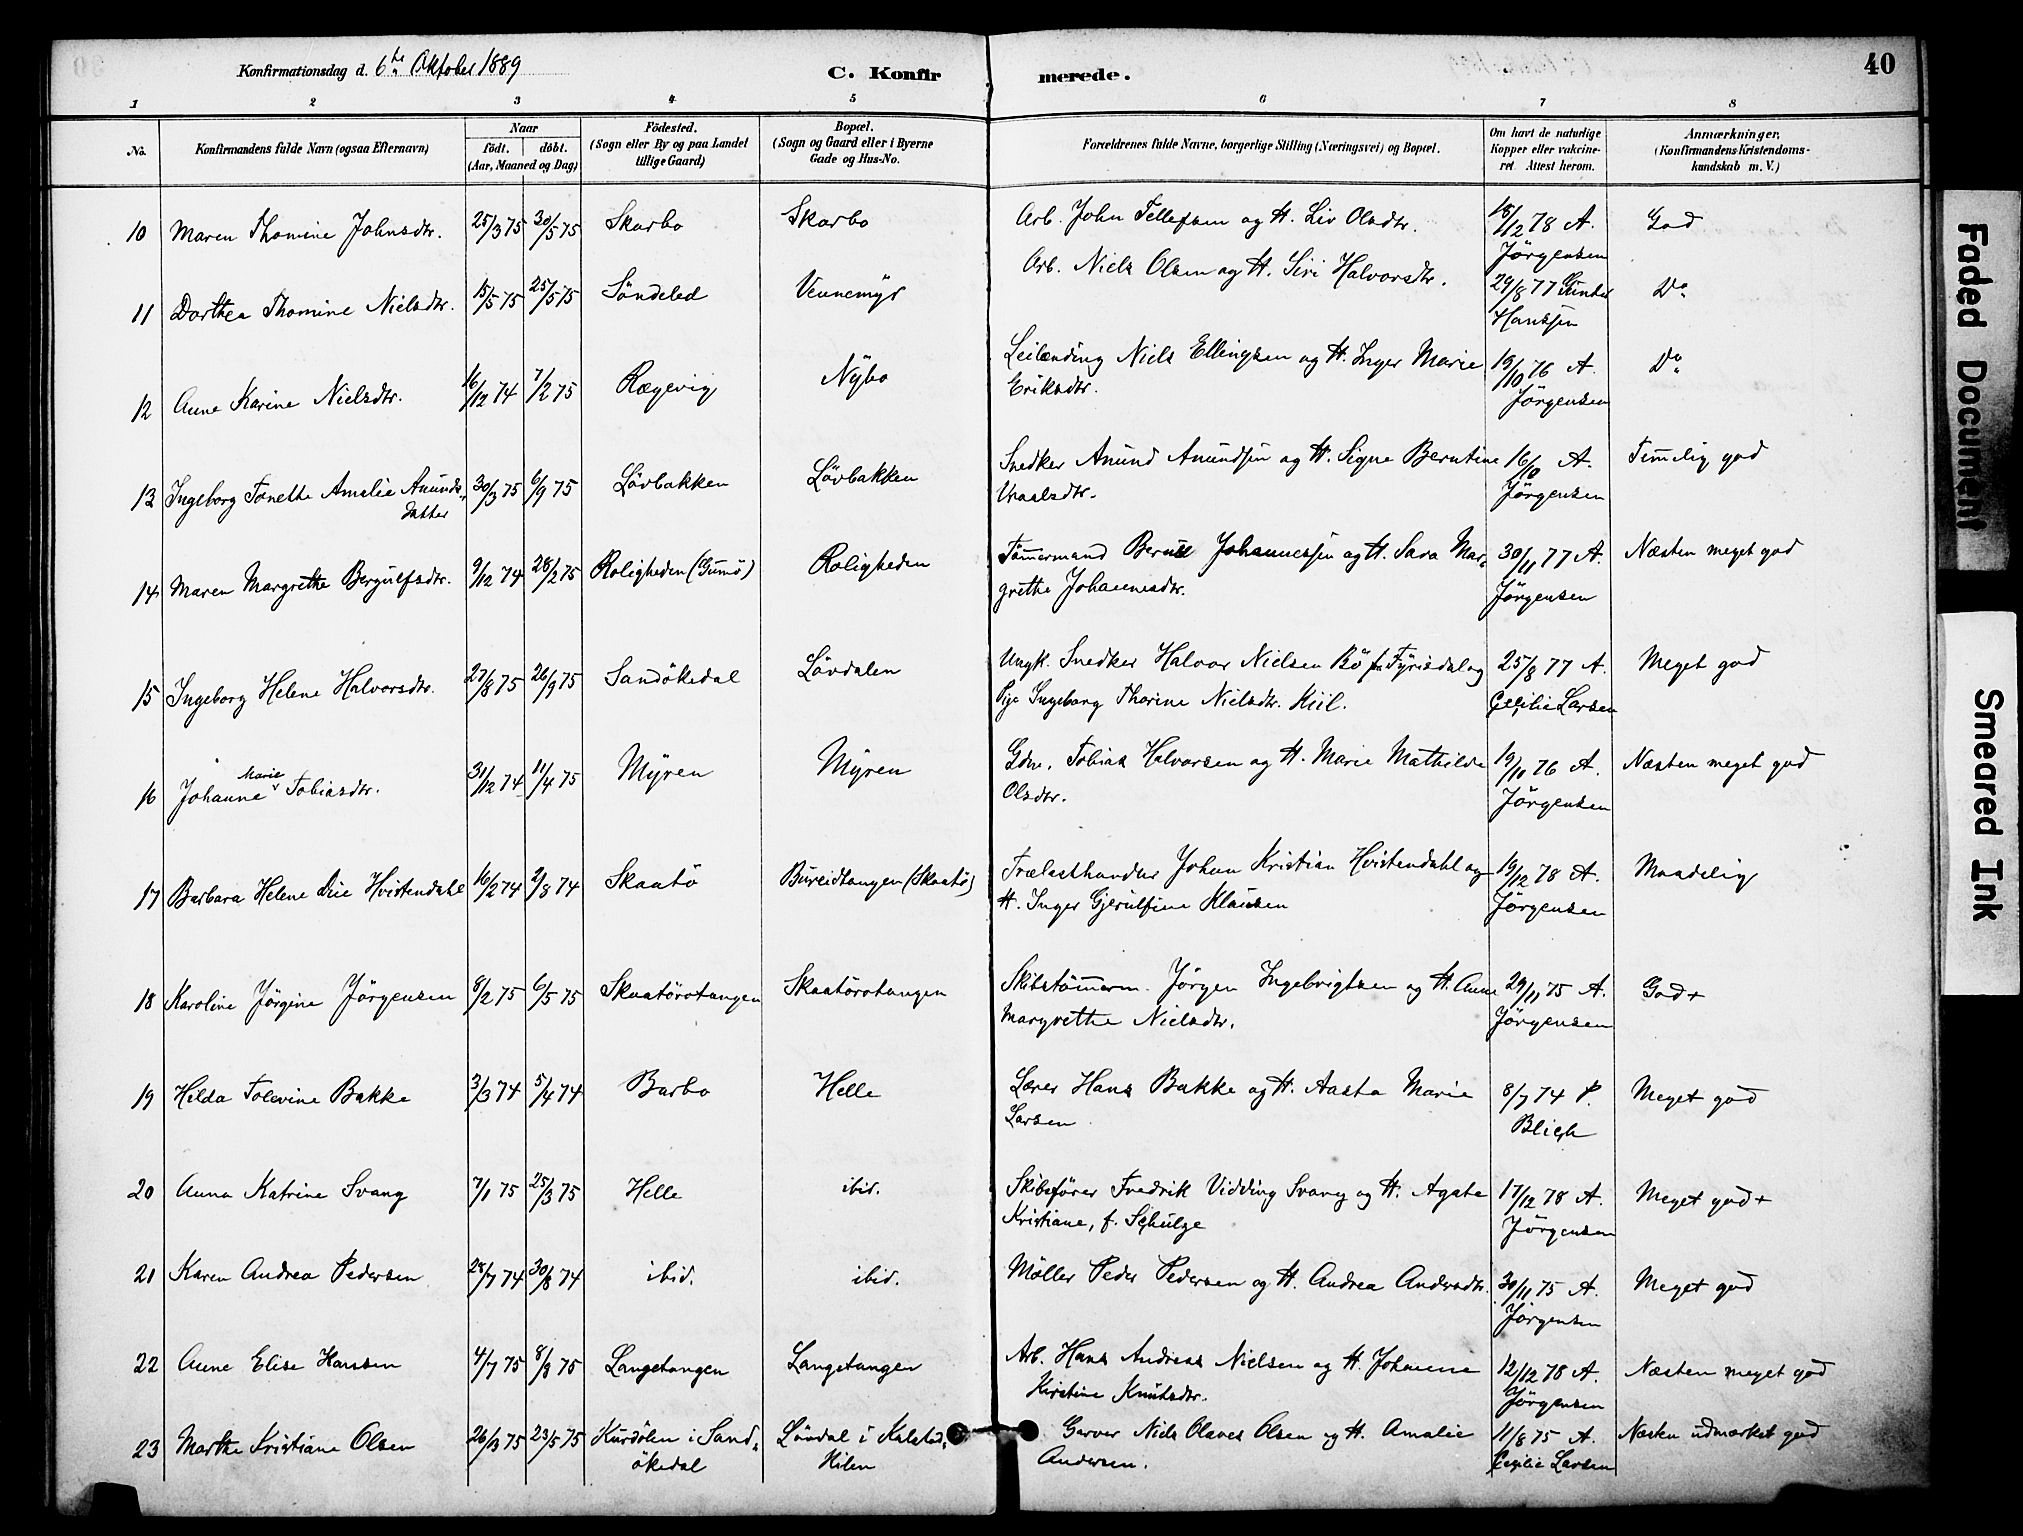 Konfirmationsdag d. 6te Oktober 1889
C. Konfirmerede.
40
1 2 3 4 5 6 7 8
No.
Konfirmandens fulde Navn (ogsaa Efternavn)
Naar
födt. döbt.
(Aar, Maaned og Dag)
Födested.
(Sogn eller By og paa Landet
tillige Gaard)
Bopæl.
(Sogn og Gaard eller i Byerne
Gade og Hus-No.
Forældrenes fulde Navne, borgerlige Stilling (Næringsvei) og Bopæl.
Om havt de naturlige
Kopper eller vakcine-
ret Attest herom.
Anmærkninger,
(Konfirmandens Kristendoms-
kundskab m. V.)
10 Maren Thomine Johnsdtr. 25/3 75 30/5 75 Skarbo Skarbo Arb. John Tellefsen og H. Liv Olsdtr. 18/12 78 A. God
Jörgensen
11 Dorthea Thomine Nielsdtr. 15/5 75 25/5 75 Söndeled Vennemyr Arb. Niels Olsen og H. Siri Halvorsdtr. 29/8 77 Gunder Do
Hanssen
12 Anne Karine Nielsdtr. 16/12 74 7/2 75 Rægevig Nybo Leilænding Niels Ellingsen og H. Inger Marie 19/10 76 A. Do
Eriksdtr. Jörgensen
13 Ingeborg Tonette Amalie Anunds- 30/3 75 6/9 75 Lövbakken Lövbakken Snedker Anund Anundsen og H. Signe Berntine 16/10 A. Temmelig god
datter Jörgensen
14 Maren Margrethe Bergulfsdtr. 9/12 74 28/2 75 Roligheden (Gumö) Roligheden Tömmermand Johannessen og H. Sara Mar- 30/11 77 A. Næsten meget god
grethe Johannesdtr. Jörgensen
15 Ingeborg Helene Halvorsdtr. 27/8 75 26/9 75 Sandökedal Lövdalen Ungk. Snedker Halvor Nielsen Bö fra Fyrisdal og 25/8 77 A. Meget god
Pige Ingeborg Thorine Nielsdtr. Kiil. Cecilie Larsen
16 Johanne Marie Tobiasdtr. 31/12 74 11/4 75 Myren Myren Gdm. Tobias Halvorsen og H. Marie Mathilde 19/10 76 A. Næsten meget god
Olsdtr. Jörgensen
17 Barbara Helene Due Hvistendahl 16/2 74 2/8 74 Skaatö Bureidtangen (Skaatö) Trælasthandler Johan Kristian Hvistendahl og 19/12 78 A. Maadelig
H. Inger Gjerulfine Klausen Jörgensen
18 Karoline Jörgine Jörgensen 8/2 75 6/5 75 Skaatörotangen Skaatörotangen Skibstömmerm. Jörgen Ingebrigtsen og H. Anne 29/11 75 A. God+
Margrethe Nielsdtr. Jörgensen
19 Hilda Tolevine Bakke 3/3 74 5/4 74 Barbo Helle Lærer Hans Bakke og H. Aasta Marie 8/7 74 P. Meget god
Larsen Blich
20 Anna Katrine Svang 7/1 75 25/3 75 Helle ibid. Skibsförer Fredrik Vidding Svang og H. Agate 17/12 78 A. Meget god+
Kristiane, f. Schulze Jörgensen
21 Karen Andrea Pedersen 28/7 74 30/8 74 ibid. ibid. Möller Peder Pedersen og H. Andrea Andersdtr. 30/11 75 A. Meget god
Jörgensen
22 Anne Elise Hansen 4/7 75 8/8 75 Langetangen Langetangen Arb. Hans Andreas Nielsen og H. Johanne 12/12 78 A. Næsten meget god
Kirstine Knutsdtr. Jörgensen
23 Marthe Kristiane Olsen 26/3 75 23/5 75 Kurdölen i Sand- Lövdal i Kalstad- Garver Niels Olaves Olsen og H. Amalie 11/8 75 A. Næsten udmærket god
ökedal Kilen Andersen. Cecilie Larsen
Faded Document
Smeared Ink